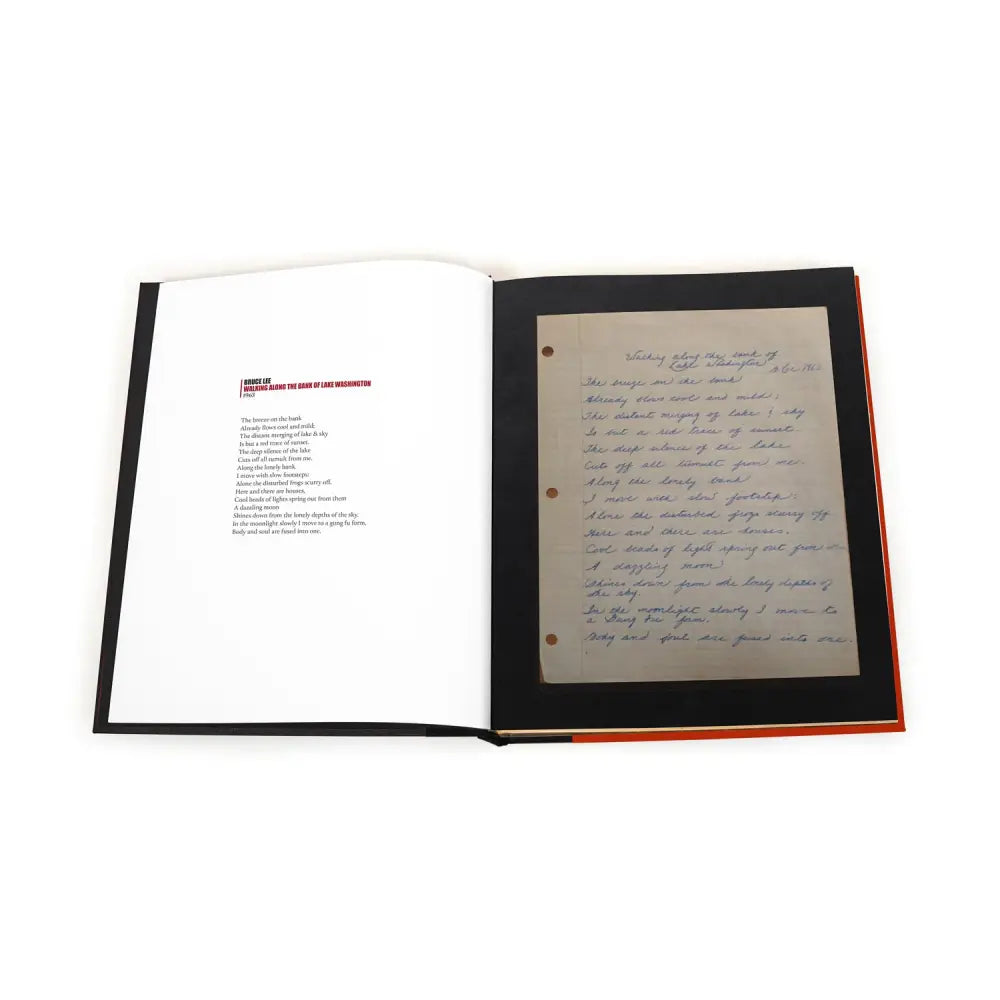 BRUCE LEE
WALKING ALONG THE BANK OF LAKE WASHINGTON
1963
The breeze on the bank
Already flows cool and mild;
The distant merging of lake & sky
Is but a red trace of sunset.
The deep silence of the lake
Cuts off all tumult from me.
Along the lonely bank
I move with slow footsteps:
Alone the disturbed frogs scurry off.
Here and there are houses,
Cool beads of lights spring out from them
A dazzling moon
Shines down from the lonely depths of the sky.
In the moonlight slowly I move to a gung fu form,
Body and soul are fused into one.
Walking along the bank of
Lake Washington
1963
The breeze on the bank
Already blows cool and mild;
The distant merging of lake & sky
Is but a red trace of sunset.
The deep silence of the lake
Cuts off all tumult from me.
Along the lonely bank
I move with slow footstep:
Alone the disturbed frogs scurry off
Here and there are houses.
Cool beads of light spring out from
A dazzling moon
Shines down from the lonely depths of
the sky.
In the moonlight slowly I move to
a Gung Fu form.
Body and soul are fused into one.